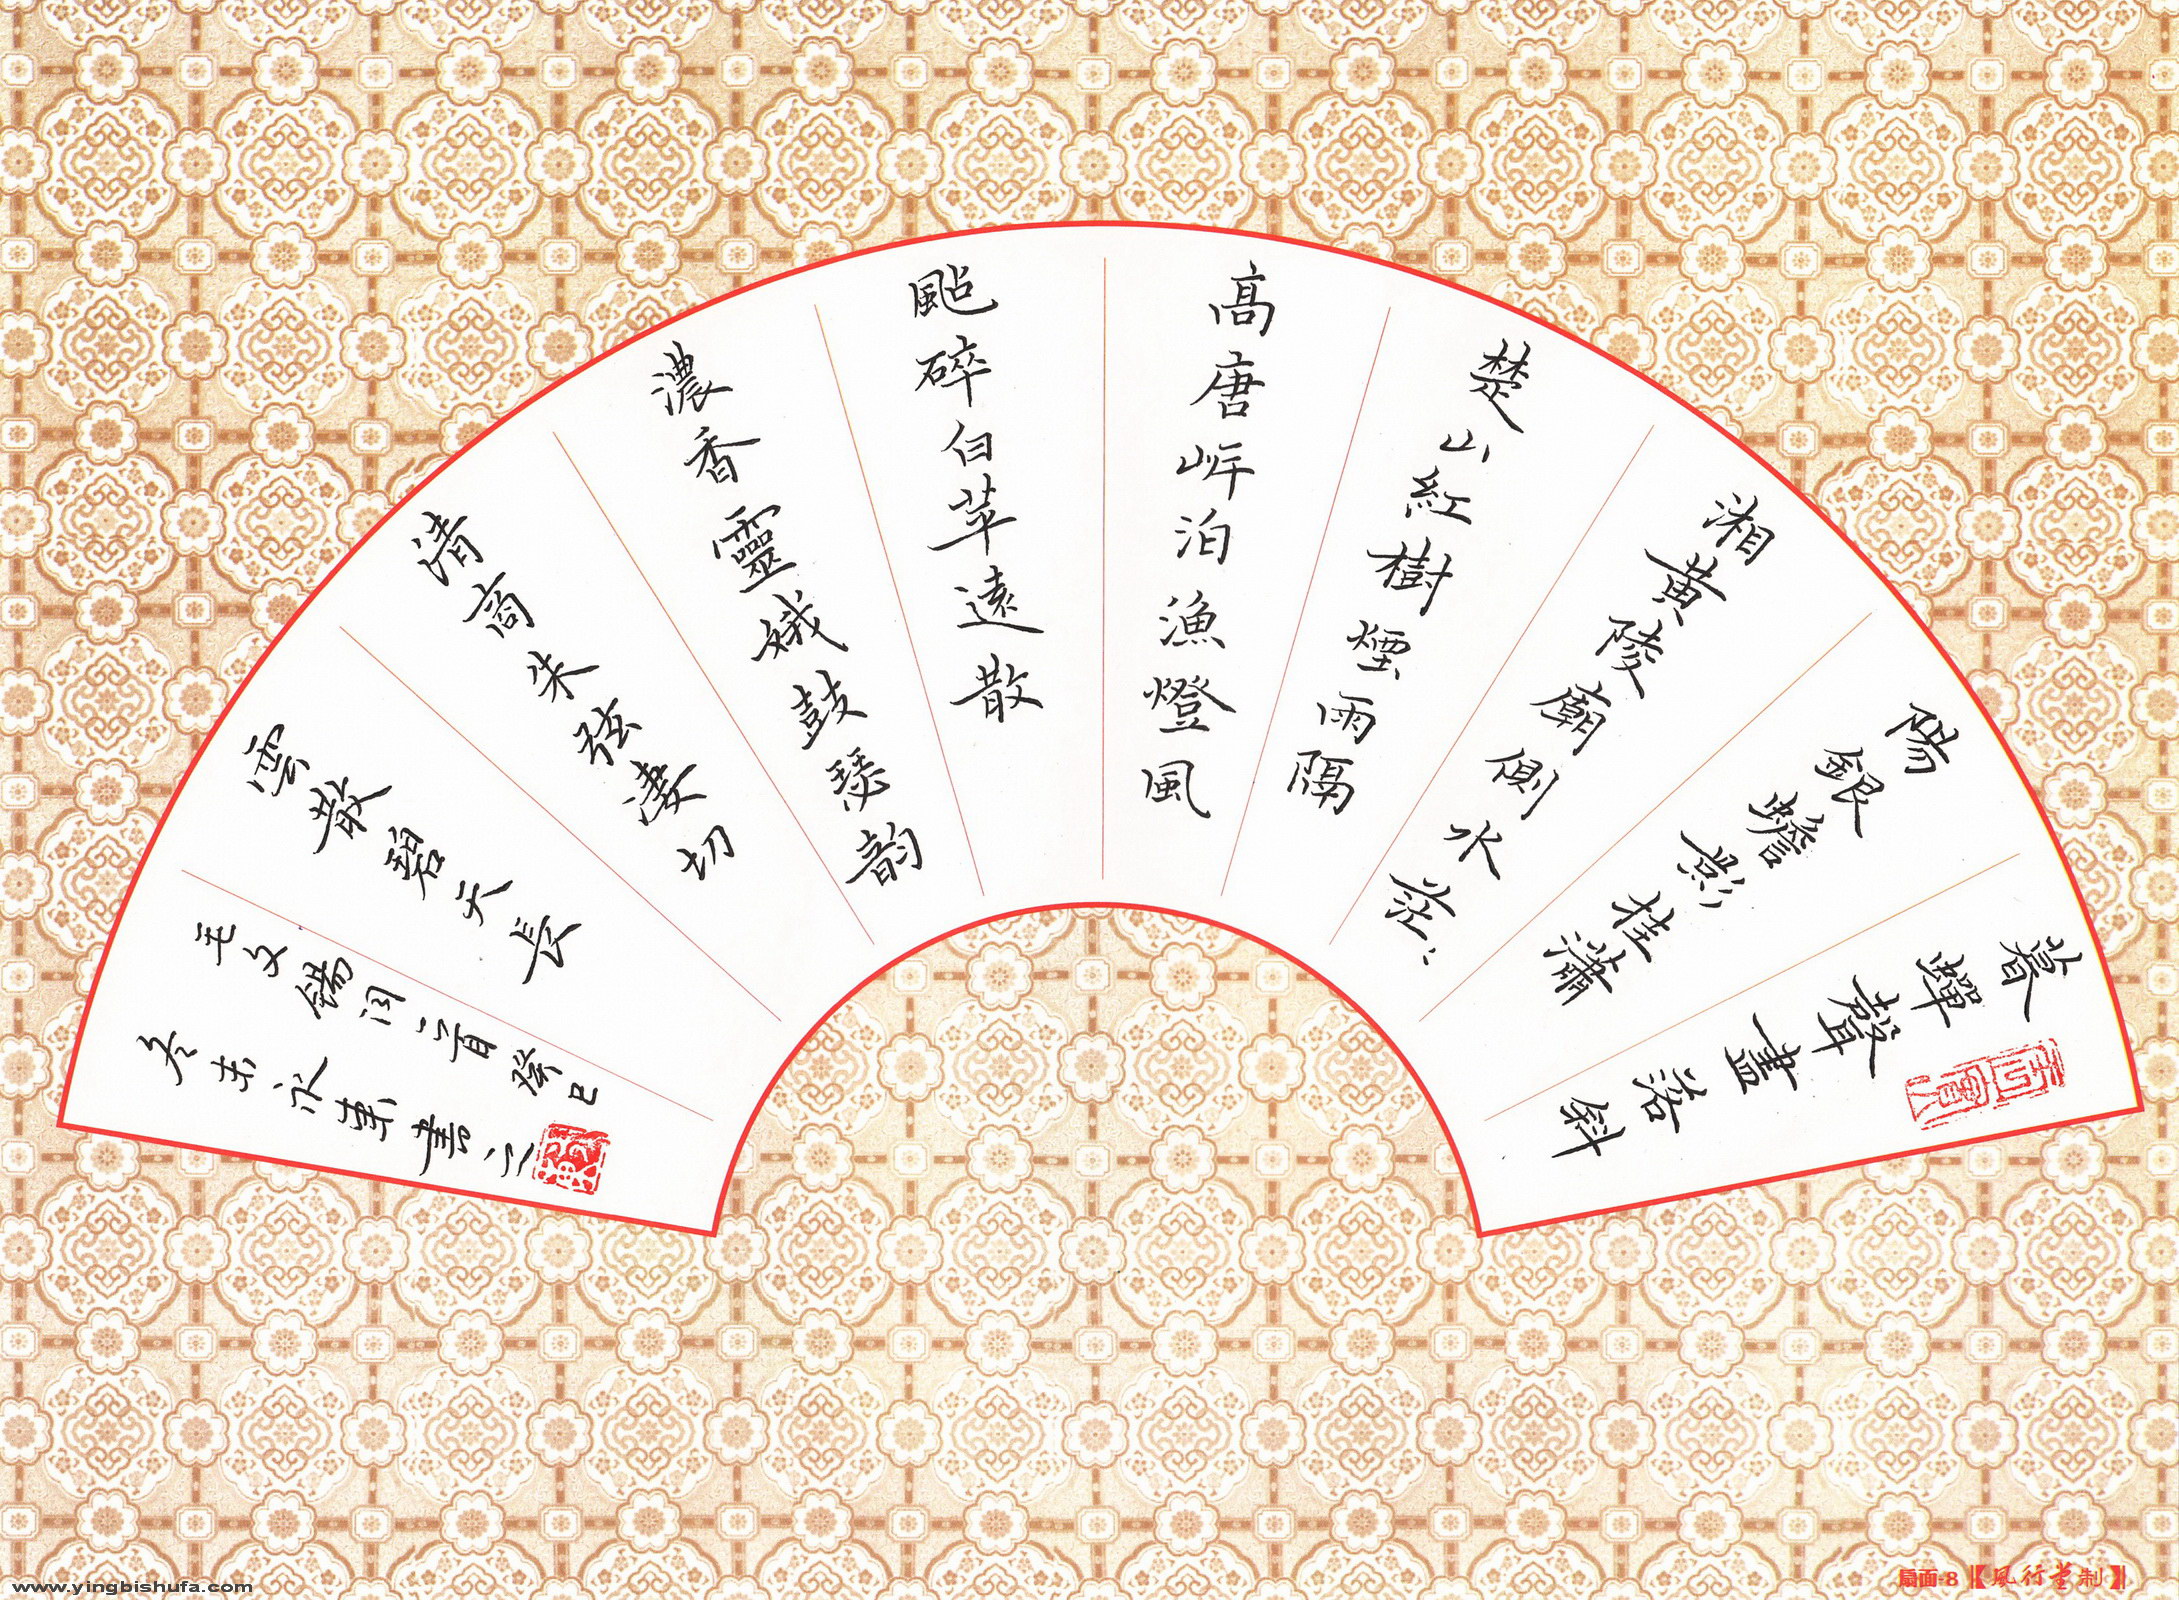 暮蟬聲盡落斜
陽銀蟾影挂瀟
湘黄陵廟側水茫〻
楚山紅樹煙雨隔
高唐岸泊漁燈風
颭碎白苹遠散
濃香靈娥鼓瑟韵
清商朱弦凄切
雲散碧天長
毛文錫詞一首癸巳
冬永書之
www.yingbishufa.com
扇面-8【風行堂制】